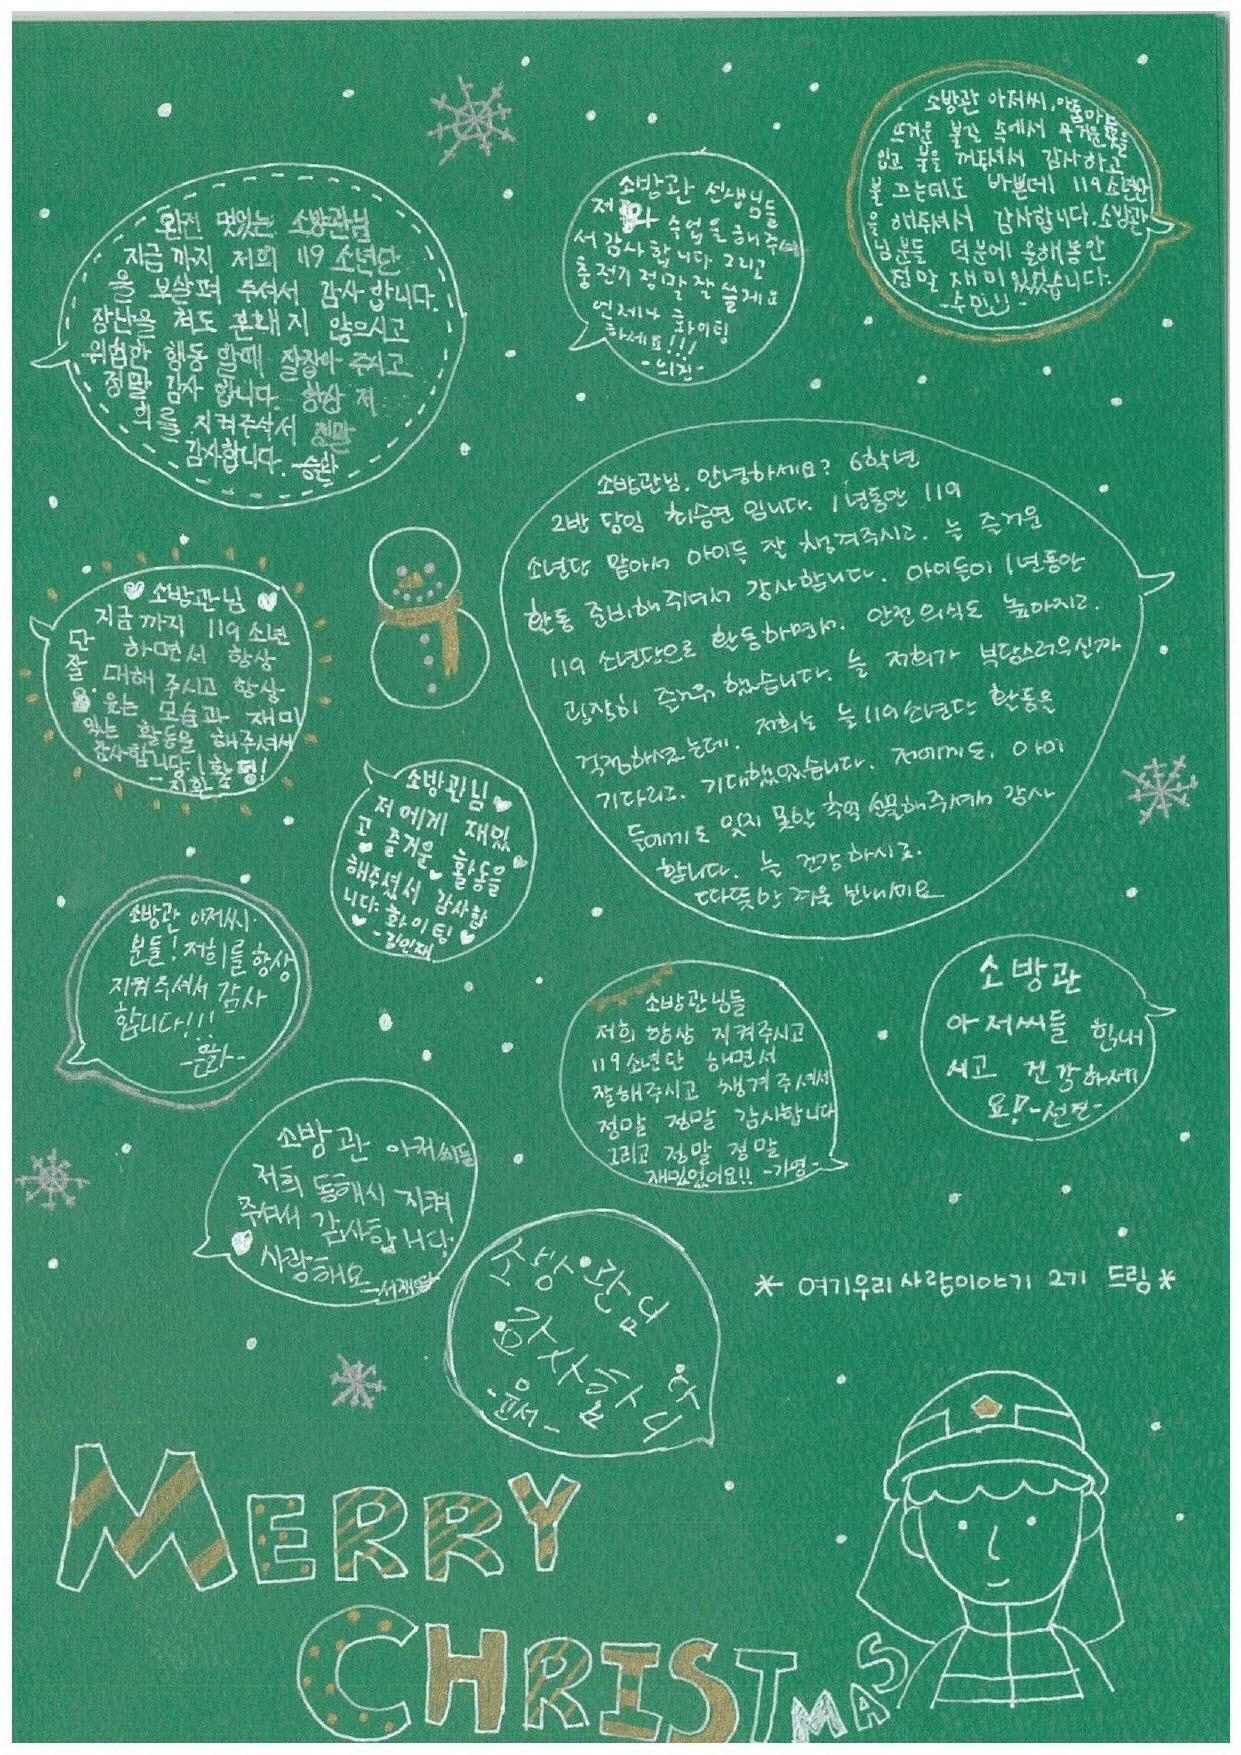 완전 멋있는 소방관님
지금 까지 저희 119 소년단
을 보살펴 주셔서 감사합니다.
장난을 쳐도 혼내지 않으시고
위험한 행동 할때 잘잡아 주시고
정말 감사 합니다. 항상 저
희를 지켜주셔서 정말
감사합니다. -승환
소방관 선생님들
저희와 수업을 해주셔
서 감사합니다 그리고
충전기 정말 잘 쓸게요
언제나 화이팅
하세요!!!
-의진-
소방관 아저씨, 아줌마들
뜨거운 불길 속에서 무거운 옷을
입고 불을 꺼주셔서 감사하고
불 끄는데도 바쁜데 119소년단
을 해주셔서 감사합니다. 소방관
님분들 덕분에 올해동안
정말 재미있었습니다.
-수민-
소방관님. 안녕하세요? 6학년
2반 담임 최승연 입니다. 1년동안 119
소년단 맡아서 아이들 잘 챙겨주시고. 늘 즐거운
활동 준비해 주셔서 감사합니다. 아이들이 1년동안
119 소년단으로 활동하면서. 안전의식도 높아지고.
굉장히 즐거워 했습니다. 늘 저희가 부담스러우신까
걱정하셨는데. 저희는 늘 119소년단 활동을
기다리고. 기대했었습니다. 저에게도. 아이
들에게도 잊지 못할 추억 선물해주셔서 감사
합니다. 늘 건강하시고.
따뜻한 겨울 보내세요
소방관님
지금 까지 119 소년
단 하면서 항상
잘. 대해 주시고 항상
웃는 모습과 재미
있는 활동을 해주셔서
감사합니다! 화팅!
-지환-
소방관님
저에게 재밌
고 즐거운 활동을
해주셨서 감사합
니다. 화이팅
-김인재
소방관 아저씨
분들! 저희를 항상
지켜주셔서 감사
합니다!!!
소방관님들
저희 항상 지켜주시고
119소년단 해면서
잘해주시고 챙겨주셔서
정말 정말 감사합니다
그리고 정말 정말
재밌었어요!! -가영-
소방관
아저씨들 힘내
시고 건강하세
요! -선견-
소방관 아저씨들
저희 동해시 지켜
주셔서 감사합니다
사랑해요
소방관님
감사합니다
-윤서-
* 여기우리 사랑이야기 2기 드림 *
MERRY
CHRISTMAS